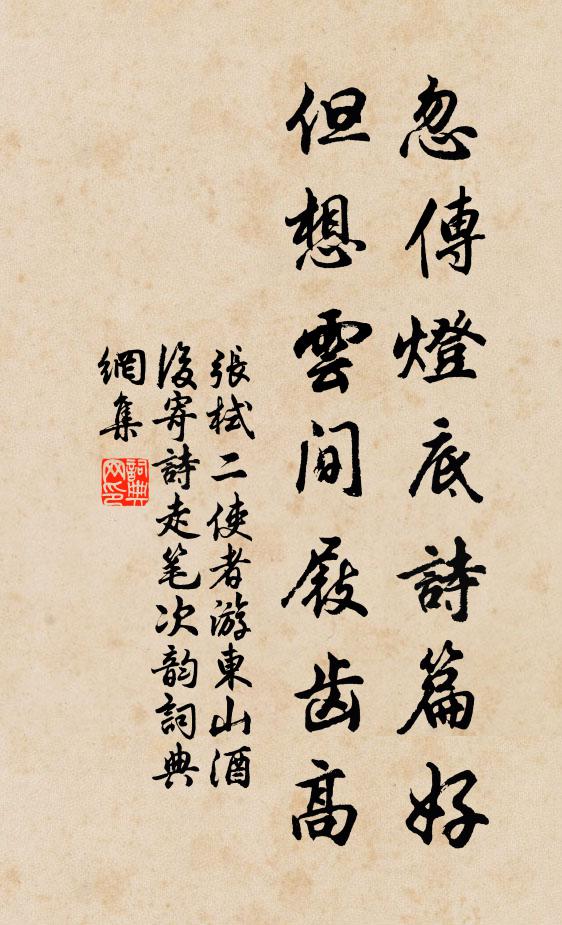 忽傳燈底詩篇好
但想雲間屐齒高
張栻二使者游東山酒
後寄詩走笔次韵詞典
網集
詞典
网印